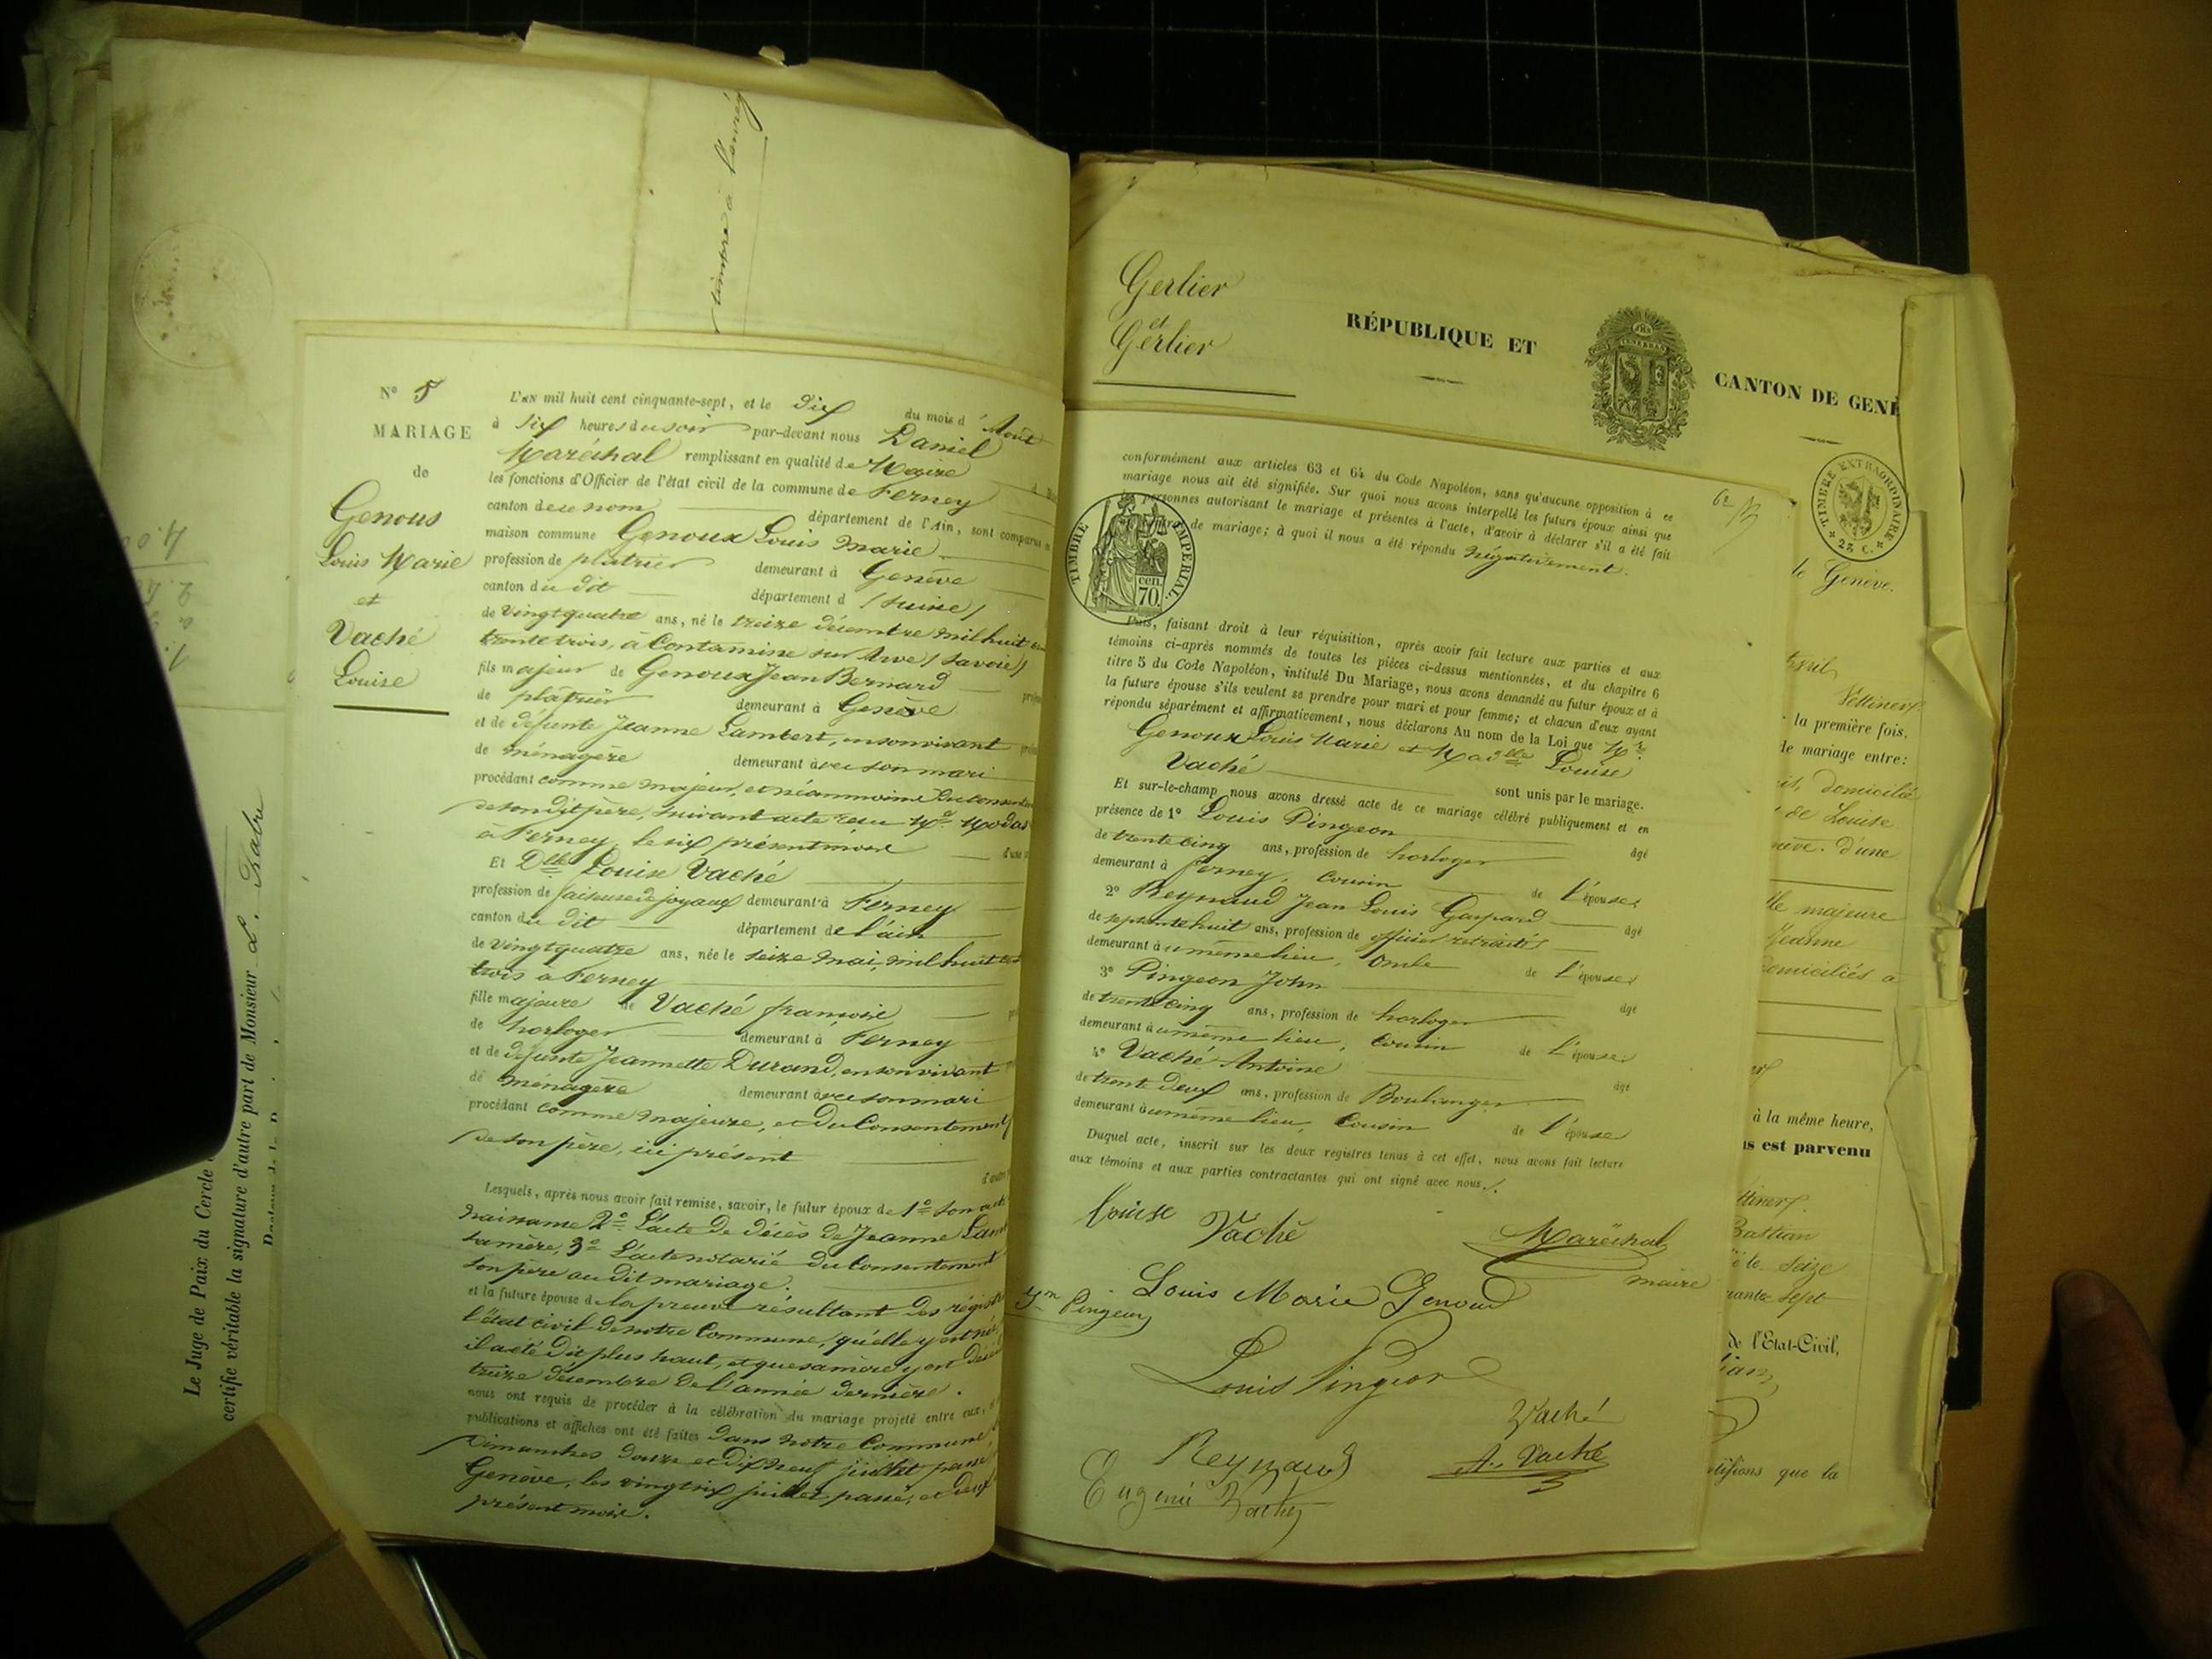 timbre à l'envers
Le Juge de Paix du Cercle
certifie véritable la signature d'autre part de Monsieur L.
Nº 5
MARIAGE
de
Genoux
Louis Marie
et
Vaché
Louise
L'AN mil huit cent cinquante-sept, et le dix du mois d'Aout
à six heures du soir par-devant nous Daniel
Maréchal remplissant en qualité de Maire
les fonctions d'Officier de l'état civil de la commune de Ferney
canton de ce nom département de l'Ain, sont comparus
maison commune Genoux Louis Marie
profession de platrier demeurant à Genève
canton du dit département d (suisse)
de Vingtquatre ans, né le treize décembre mil huit
trente trois, à Contamine sur Arve (Savoie)
fils majeur de Genoux Jean Bernard
de platrier demeurant à Genève
et de défunte Jeanne Lambert, en son vivant
de ménagère demeurant avec son mari
procédant comme majeur, et néanmoins du
de son dit père, suivant acte reçu Me
à Ferney, le six présent mois
Et Dlle Louise Vaché
profession de faiseuse de joyaux demeurant à Ferney
canton du dit département de l'ain
de Vingtquatre ans, née le seize mai, mil huit cent
trois à Ferney
fille majeure de Vaché françois
de horloger demeurant à Ferney
et de défunte Jeannette Durand, en son vivant
de ménagère demeurant avec son mari
procédant comme majeure, et du Consentement
de son père, ici présent
Lesquels, après nous avoir fait remise, savoir, le futur époux de 1º son acte
naissance 2º L'acte de décès de Jeanne
sa mère, 3º L'acte notarié du Consentement
son père au dit mariage.
et la future épouse de la preuve résultant des
l'état civil de notre Commune, qu'elle y est née
il a été dit plus haut, et que sa mère y est
treize décembre de l'année dernière.
nous ont requis de procéder à la célébration du mariage projeté entre eux,
publications et affiches ont été faites dans notre Commune
Dimanches douze et dix neuf juillet passé
Genève, les vingt six juillet passé, et deux
présent mois.
Gerlier
et
Gerlier
RÉPUBLIQUE ET CANTON DE GENÈ
TIMBRE EXTRAORDINAIRE
25 C.
conformément aux articles 63 et 64 du Code Napoléon, sans qu'aucune opposition à ce
mariage nous ait été signifiée. Sur quoi nous avons interpellé les futurs époux ainsi que
personnes autorisant le mariage et présentes à l'acte, d'avoir à déclarer s'il a été fait
de mariage; à quoi il nous a été répondu négativement.
TIMBRE IMPÉRIAL
cen. 70.
Puis, faisant droit à leur réquisition, après avoir fait lecture aux parties et aux
témoins ci-après nommés de toutes les pièces ci-dessus mentionnées, et du chapitre 6
titre 5 du Code Napoléon, intitulé Du Mariage, nous avons demandé au futur époux et à
la future épouse s'ils veulent se prendre pour mari et pour femme; et chacun d'eux ayant
répondu séparément et affirmativement, nous déclarons Au nom de la Loi que Mr
Genoux Louis Marie et Madelle Louise
Vaché sont unis par le mariage.
Et sur-le-champ nous avons dressé acte de ce mariage célébré publiquement et en
présence de 1º Louis Pingeon âgé
de trente cinq ans, profession de horloger
demeurant à Ferney, cousin de l'épouse
2º Reynaud Jean Louis Gaspard âgé
de septante huit ans, profession de officier retraité
demeurant au même lieu, oncle de l'épouse
3º Pingeon John âgé
de trente cinq ans, profession de horloger
demeurant au même lieu, cousin de l'épouse
4º Vaché Antoine âgé
de trente deux ans, profession de Boulanger
demeurant au même lieu, Cousin de l'épouse
Duquel acte, inscrit sur les deux registres tenus à cet effet, nous avons fait lecture
aux témoins et aux parties contractantes qui ont signé avec nous.
Louise Vaché
Maréchal
maire
Louis Marie Genoud
Jn Pingeon
Louis Pingeon
Vaché
Reynaud
A. Vaché
Eugénie Vaché
de Genève.
la première fois,
de mariage entre:
domicilié
de Louise
d'une
lle majeure
Jeanne
domiciliés à
à la même heure,
is est parvenu
Bastian
le seize
ante sept
de l'Etat-Civil,
ifions que la